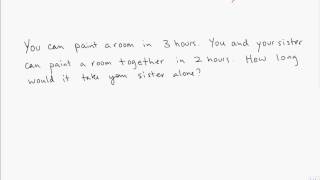 You can paint a room in 3 hours. You and your sister
can paint a room together in 2 hours. How long
would it take your sister alone?